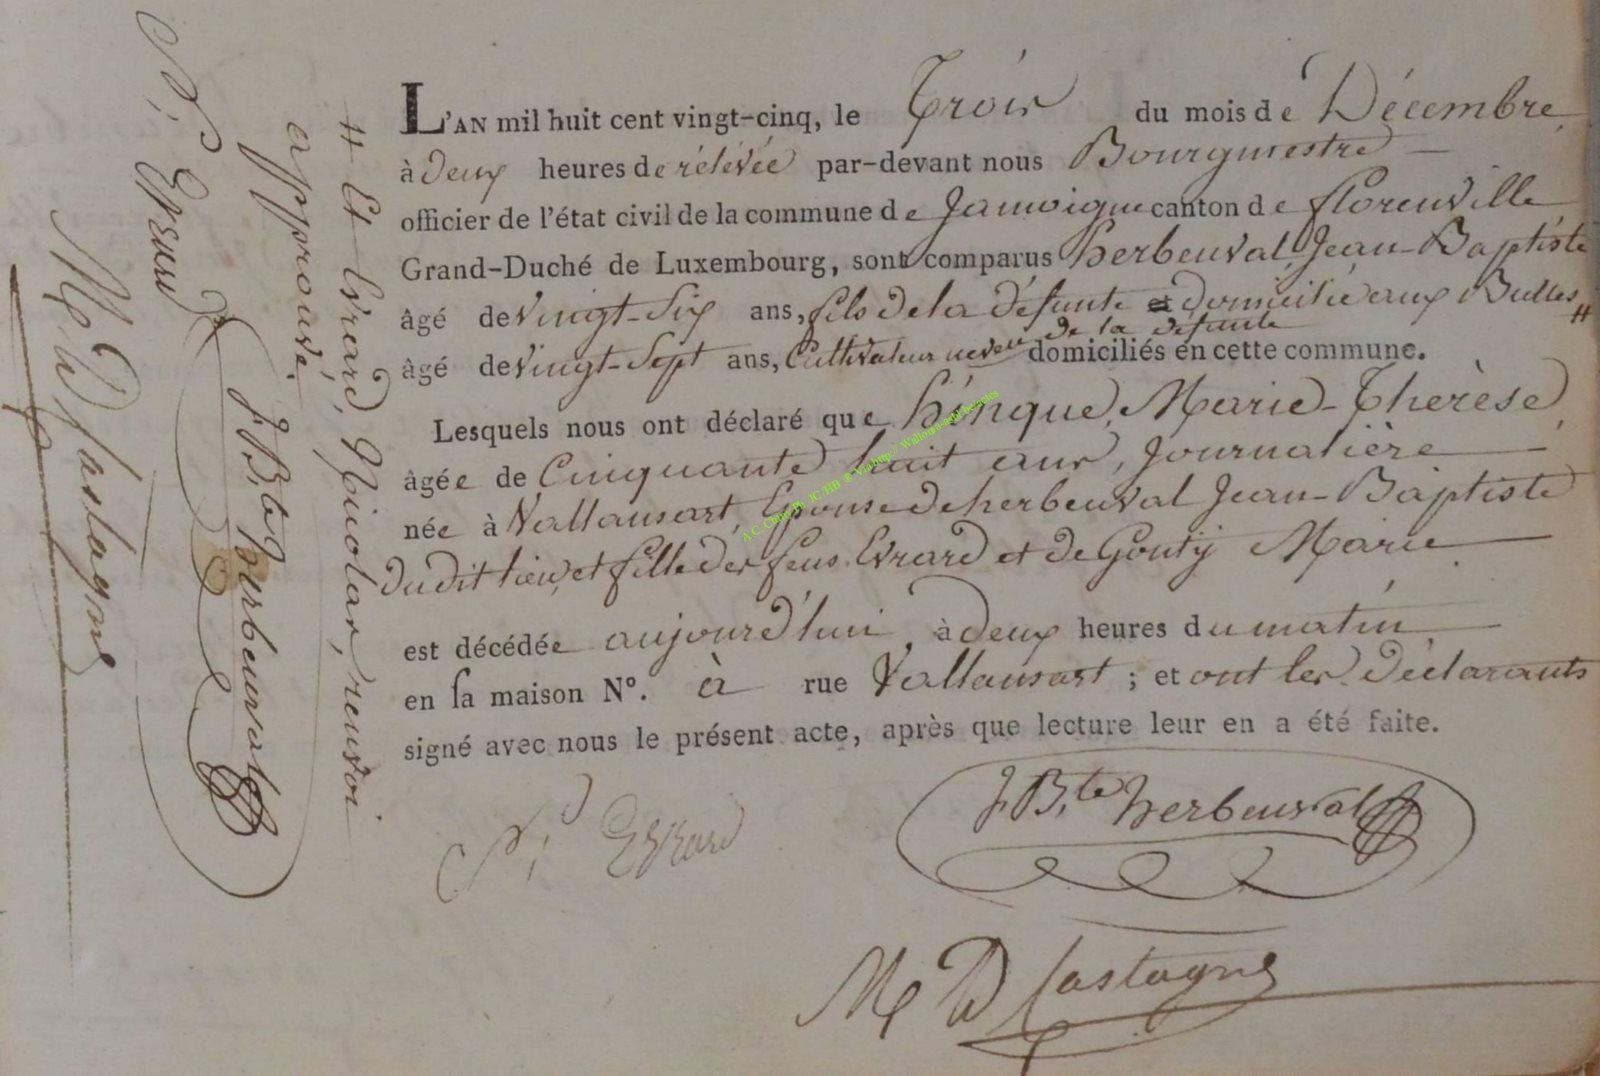 L'AN mil huit cent vingt-cinq, le Trois du mois de Décembre,
à deux heures de rélévée par-devant nous Bourgmestre
officier de l'état civil de la commune de Jamoigne canton de florenville
Grand-Duché de Luxembourg, sont comparus herbeuval Jean-Baptiste
âgé de vingt-Six ans, fils de la défunte et domicilié aux Bulles #
âgé de vingt-Sept ans, Cultivateur neveu de la défunte domiciliés en cette commune.
Lesquels nous ont déclaré que hinque, Marie-Therèse,
âgée de Cinquante huit ans, Journalière
née à Vallansart, Epouse de herbeuval Jean-Baptiste
dudit lieu, et fille des feus Evrard et de Gouty Marie
est décédée aujourd'hui à deux heures du matin
en sa maison N°. à rue Vallansart ; et ont les déclarants
signé avec nous le présent acte, après que lecture leur en a été faite.
N; Evrard
J. B.te herbeuval
# Et Evrard, Nicolas, renvoi
approuvé.
J. B.te herbeuval
N; Evrard